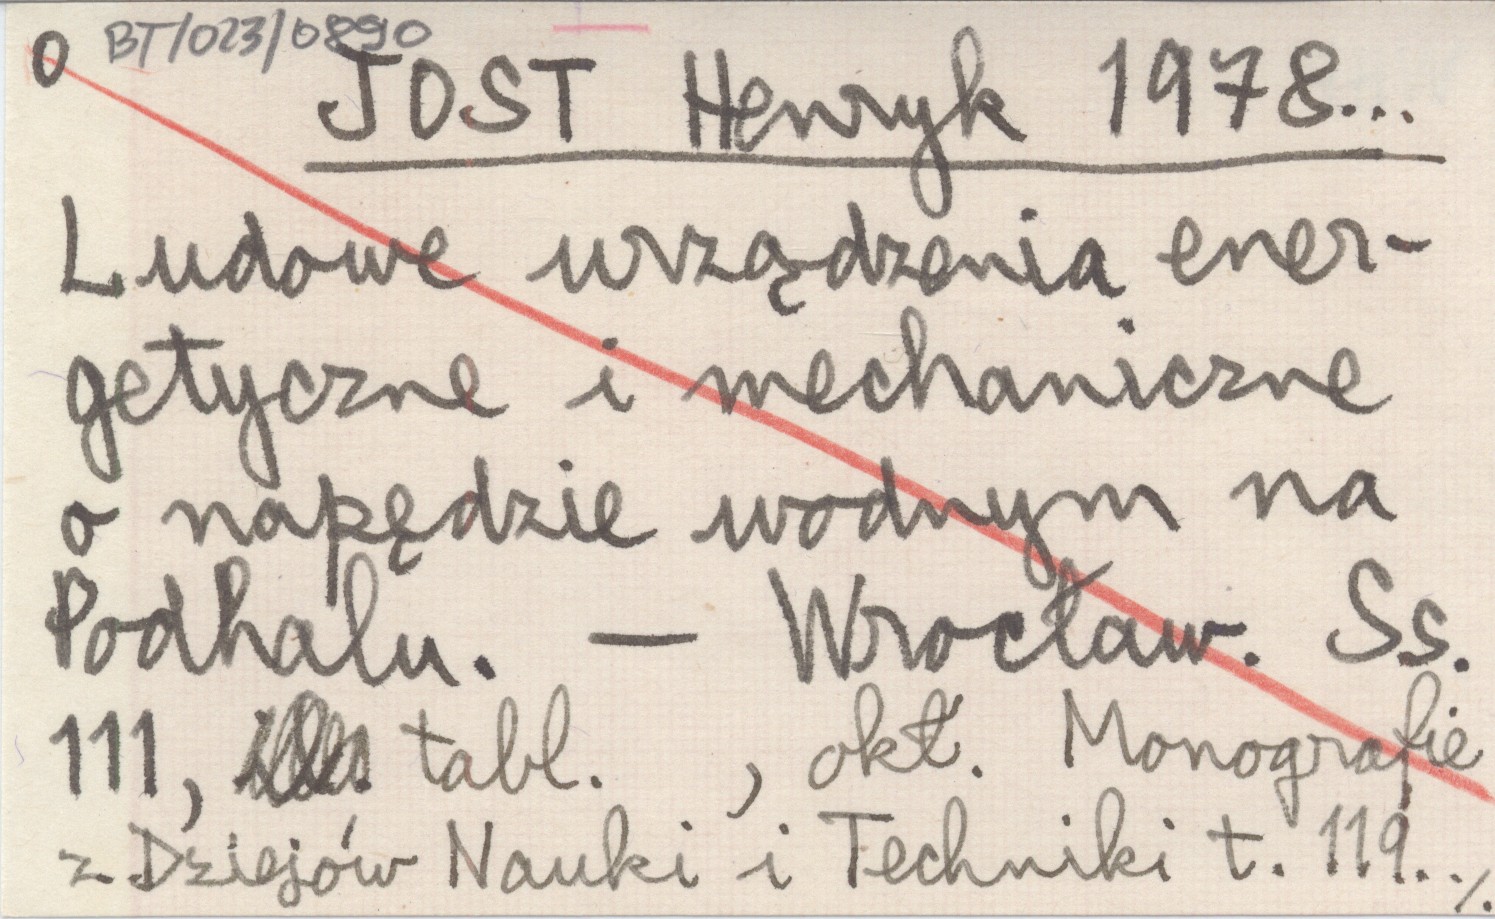 o BT/023/0890
JOST Henryk 1978...
Ludowe urządzenia ener-
getyczne i mechaniczne
o napędzie wodnym na
Podhalu. — Wrocław. Ss.
111, tabl. , okł. Monografie
z Dziejów Nauki i Techniki t. 119../.